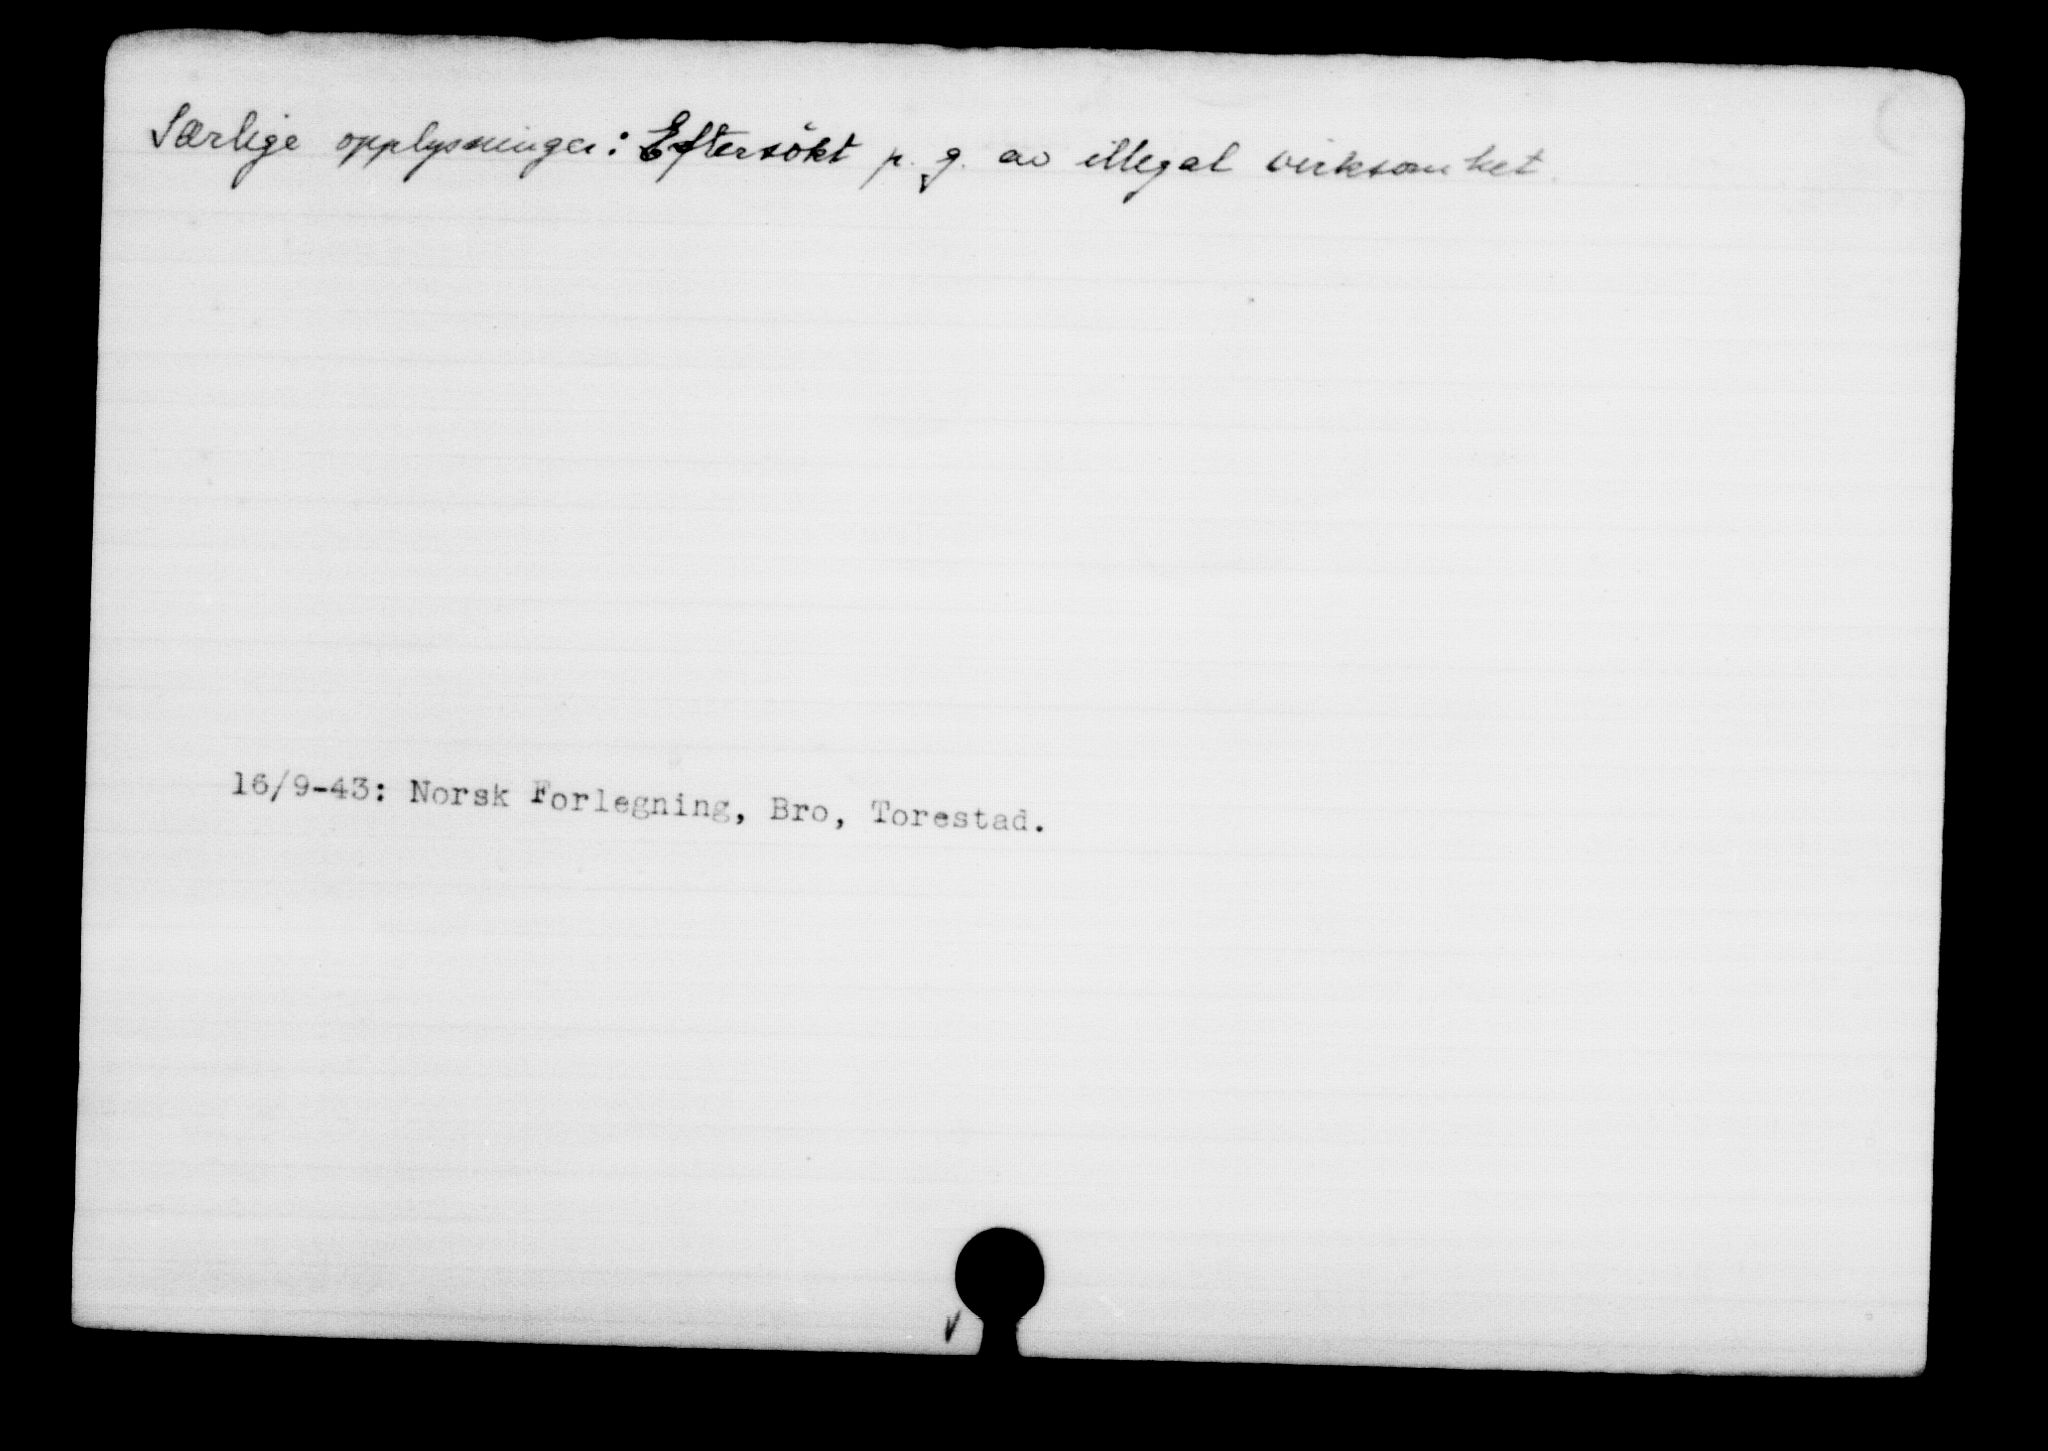 Særlige opplysninger: Eftersökt p. g. av illegal virksomhet.
16/9-43: Norsk Forlegning, Bro, Torestad.